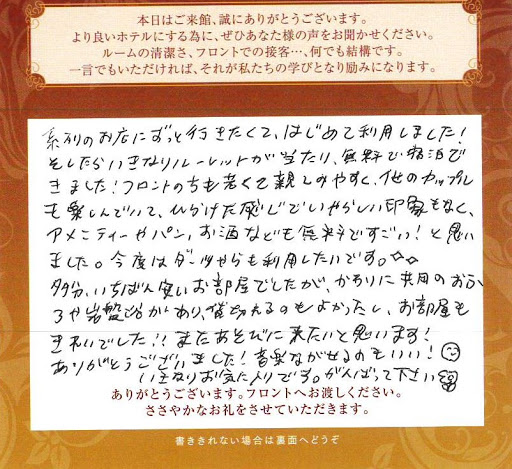 本日はご来館、誠にありがとうございます。
より良いホテルにする為に、ぜひあなた様の声をお聞かせください。
ルームの清潔さ、フロントでの接客…、何でも結構です。
一言でもいただければ、それが私たちの学びとなり励みになります。
系列のお店にずっと行きたくて、はじめて利用しました！
そしたらいきなりルーレットが当たり、無料で宿泊で
きました！フロントの方も若くて親しみやすく、他のカップル
も楽しんでいて、ひらけた感じでいやらしい印象もなく、
アメニティーやパン、お酒なども無料ですごい！と思い
ました。今度はダーツやらも利用したいです。☆☆
多分、いちばん安いお部屋でしたが、かわりに共用のおふ
ろや岩盤浴があり、貸切れるのもよかったし、お部屋も
きれいでした！！またあそびに来たいと思います！
ありがとうございました！音楽ながせるのもいい！
いきなりお気に入りです。がんばって下さい
ありがとうございます。フロントへお渡しください。
ささやかなお礼をさせていただきます。
書ききれない場合は裏面へどうぞ